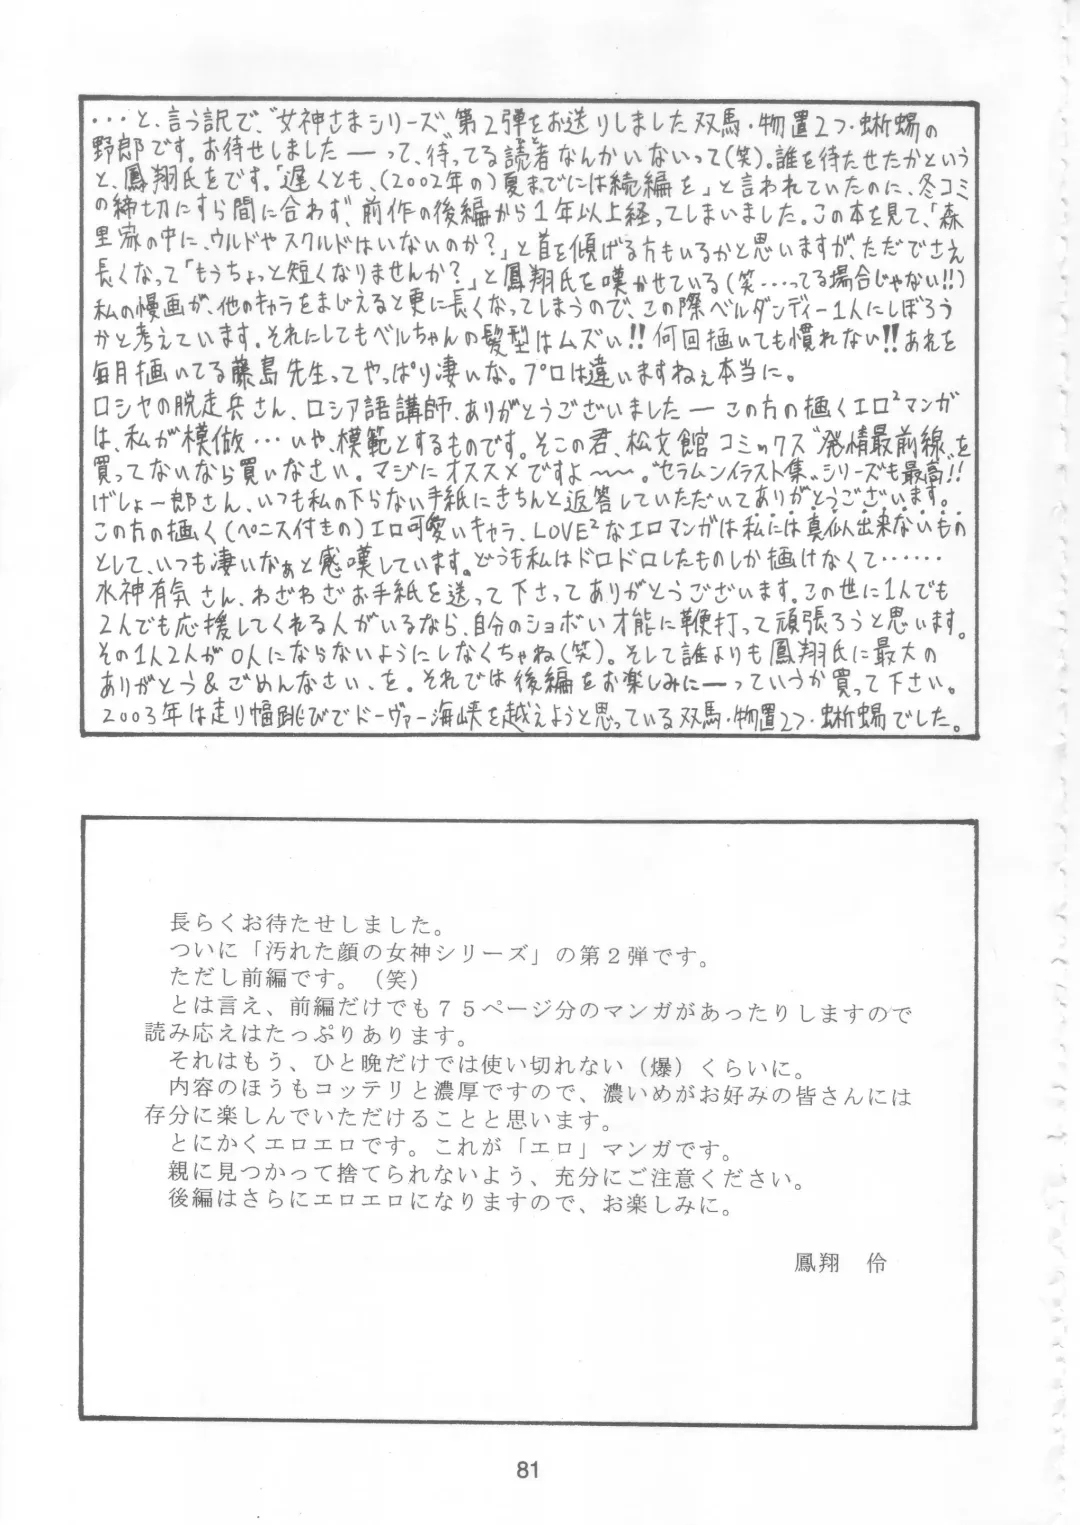 ・・・と、言う訳で、“女神さまシリーズ”第2弾をお送りしました双馬・物置2つ・蜥蜴の
野郎です。お待せしました――って、待ってる読者なんかいないって(笑)。誰を待たせたかという
と、鳳翔氏をです。「遅くとも、(2002年の)夏までには続編を」と言われていたのに、冬コミ
の締切にすら間に合わず、前作の後編から1年以上経ってしまいました。この本を見て、「森
里家の中に、ウルドやスクルドはいないのか?」と首を傾げる方もいるかと思いますが、ただでさえ
長くなって「もうちょっと短くなりませんか?」と鳳翔氏を嘆かせている(笑・・・ってる場合じゃない!!)
私の漫画が、他のキャラをまじえると更に長くなってしまうので、この際ベルダンディー1人にしぼろう
かと考えています。それにしてもベルちゃんの髪型はムズい!!何回描いても慣れない!!あれを
毎月描いてる藤島先生ってやっぱり凄いな。プロは違いますねぇ本当に。
ロシヤの脱走兵さん、ロシア語講師、ありがとうございました―この方の描くエロ²マンガ
は、私が模倣・・・いや、模範とするものです。そこの君、松文館コミックス“発情最前線”を
買ってないなら買いなさい。マジにオススメですよ〜〜。“セラムンイラスト集”シリーズも最高!!
げしょ一郎さん、いつも私の下らない手紙にきちんと返答していただいてありがとうございます。
この方の描く(ペニス付きの)エロ可愛いキャラ、LOVE²なエロマンガは私には真似出来ないもの
として、いつも凄いなぁと感嘆しています。どうも私はドロドロしたものしか描けなくて・・・・・・
水神有気さん、わざわざお手紙を送って下さってありがとうございます。この世に1人でも
2人でも応援してくれる人がいるなら、自分のショボい才能に鞭打って頑張ろうと思います。
その1人2人が0人にならないようにしなくちゃね(笑)。そして誰よりも鳳翔氏に最大の
ありがとう&ごめんなさい、を。それでは後編をお楽しみに――っていうか買って下さい。
2003年は走り幅跳びでドーヴァー海峡を越えようと思っている双馬・物置2つ・蜥蜴でした。
長らくお待たせしました。
ついに「汚れた顔の女神シリーズ」の第2弾です。
ただし前編です。(笑)
とは言え、前編だけでも75ページ分のマンガがあったりしますので
読み応えはたっぷりあります。
それはもう、ひと晩だけでは使い切れない(爆)くらいに。
内容のほうもコッテリと濃厚ですので、濃いめがお好みの皆さんには
存分に楽しんでいただけることと思います。
とにかくエロエロです。これが「エロ」マンガです。
親に見つかって捨てられないよう、充分にご注意ください。
後編はさらにエロエロになりますので、お楽しみに。
鳳翔 伶
81